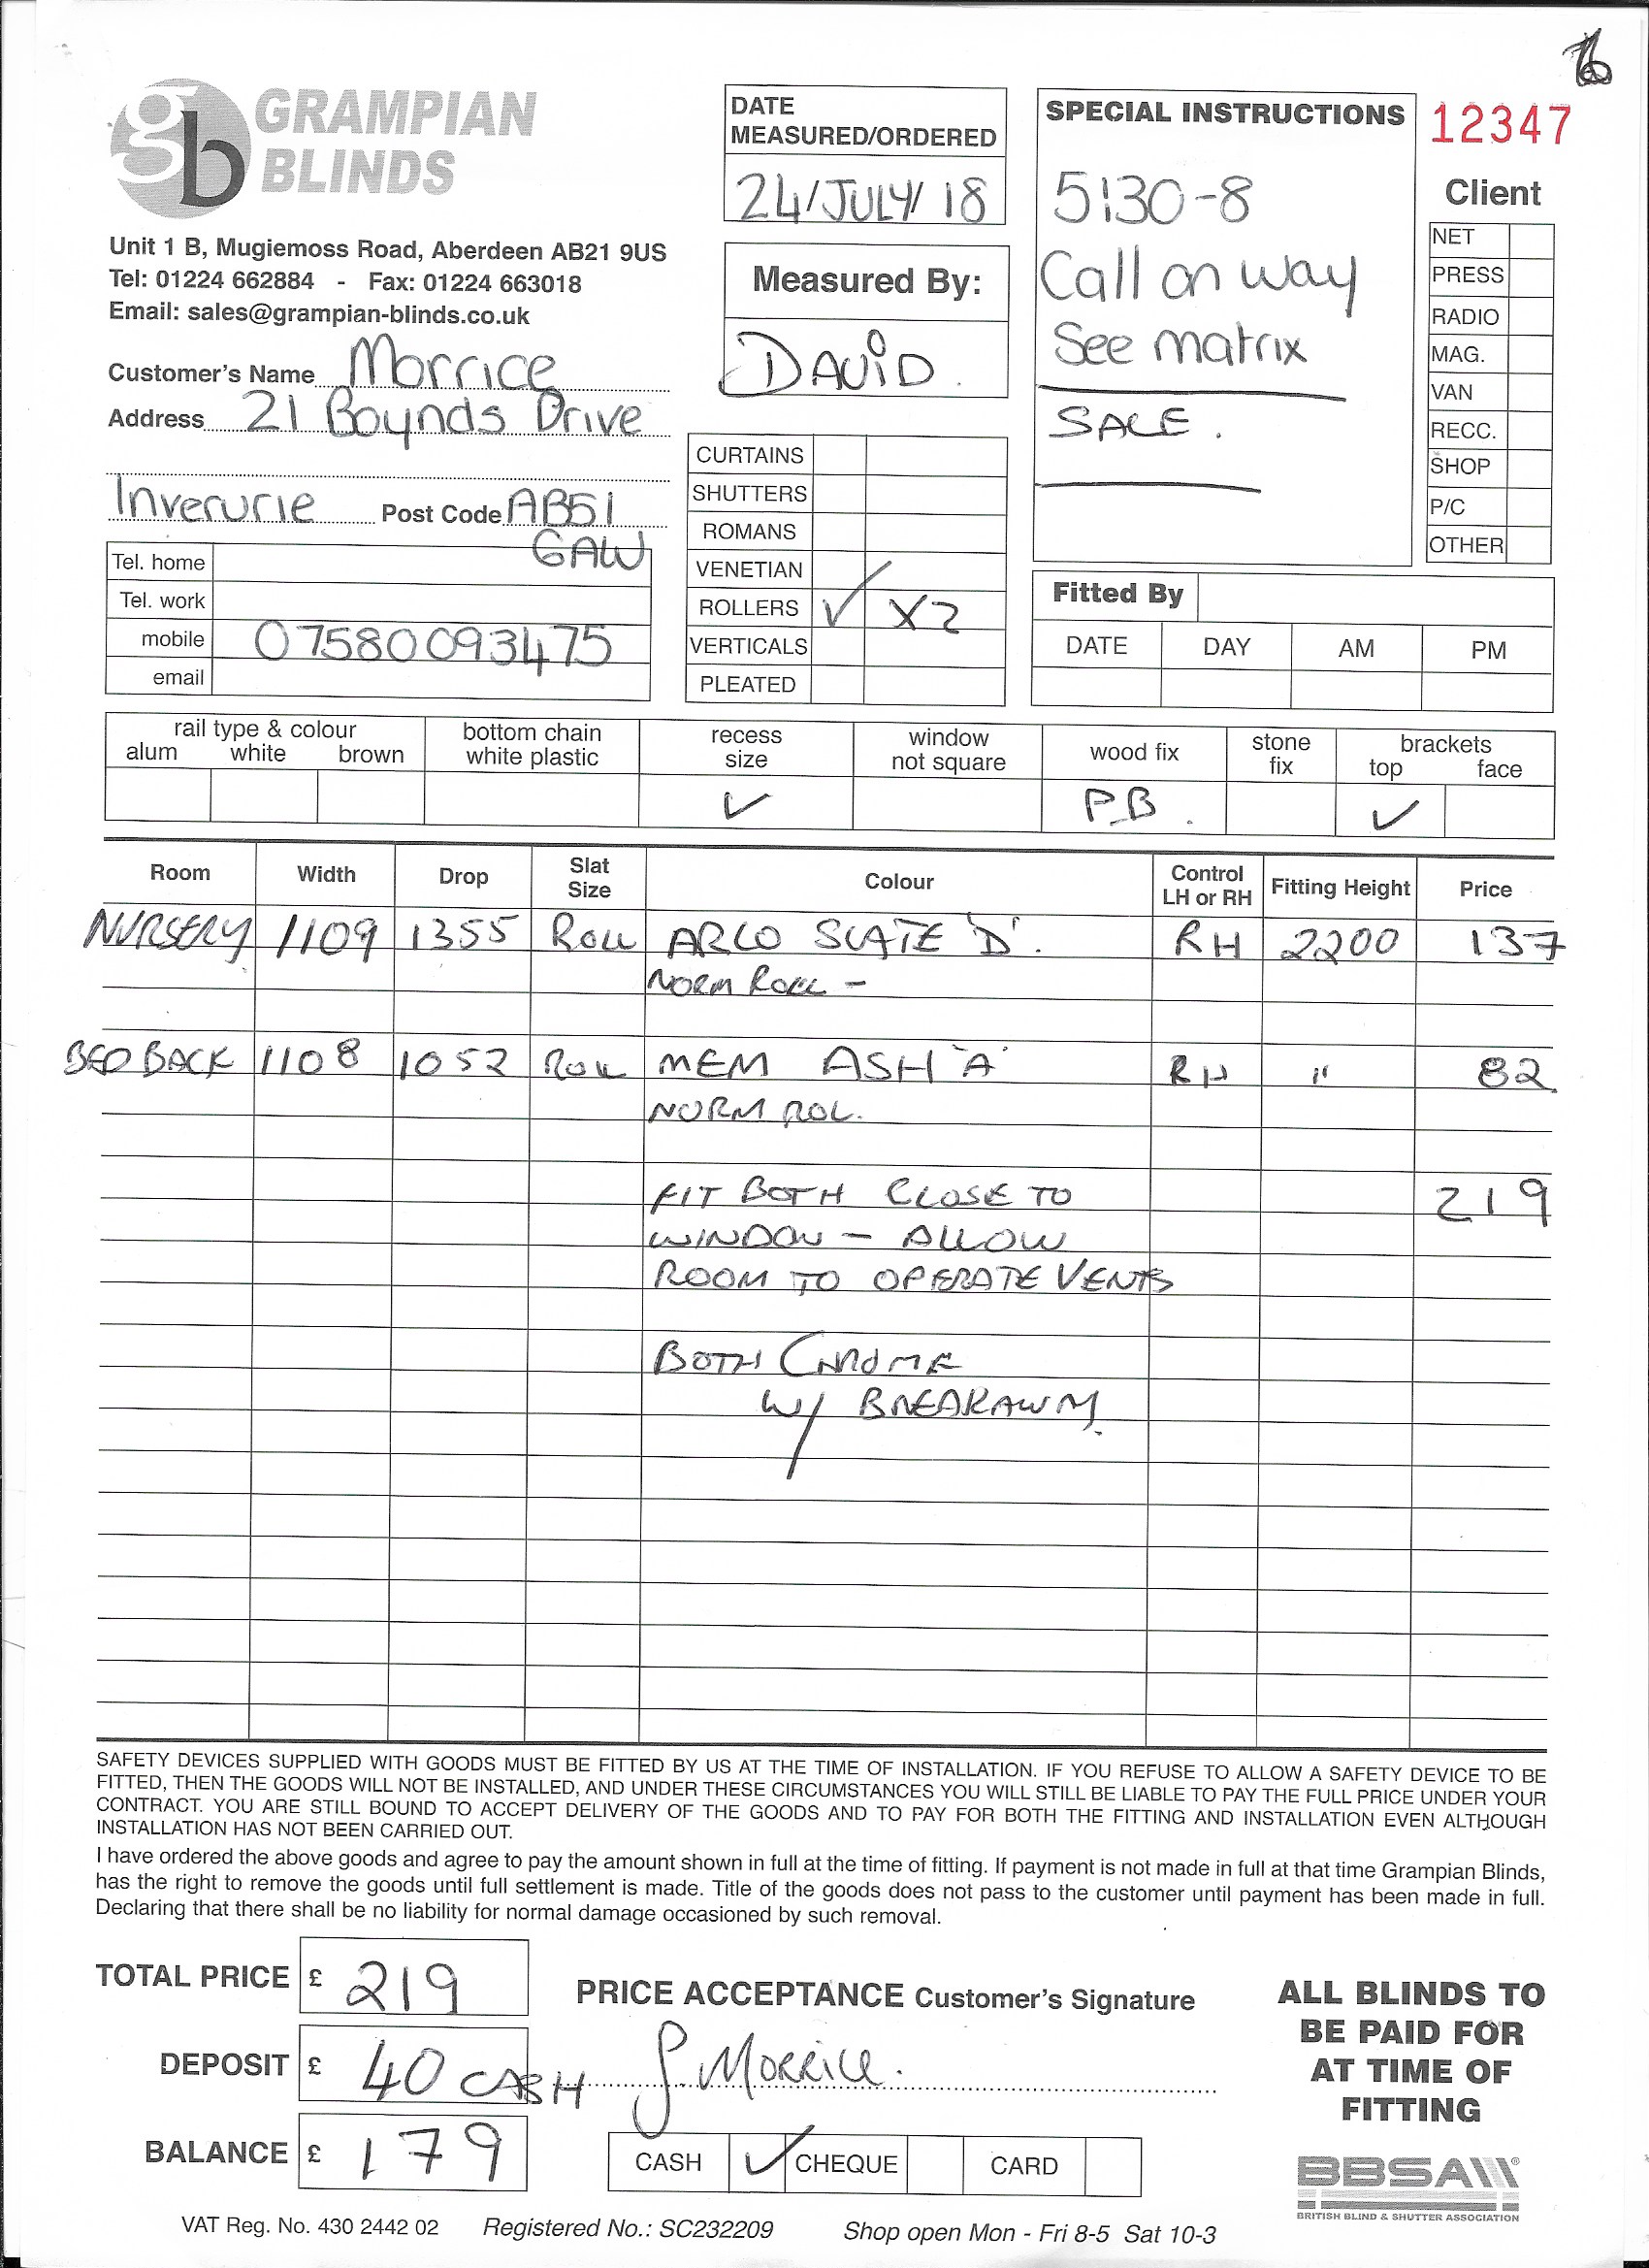 GRAMPIAN
BLINDS
gb
Unit 1 B, Mugiemoss Road, Aberdeen AB21 9US
Tel: 01224 662884 - Fax: 01224 663018
Email: sales@grampian-blinds.co.uk
Customer's Name Morrice
Address 21 Boynds Drive
Inverurie Post Code AB51
6AW
Tel. home
Tel. work
mobile 07580093475
email
DATE
MEASURED/ORDERED
24/JULY/18
Measured By:
DAViD.
CURTAINS
SHUTTERS
ROMANS
VENETIAN
ROLLERS ✓ X2
VERTICALS
PLEATED
SPECIAL INSTRUCTIONS
5:30-8
Call on way
See matrix
SALE.
12347
Client
NET
PRESS
RADIO
MAG.
VAN
RECC.
SHOP
P/C
OTHER
Fitted By
DATE DAY AM PM
rail type & colour
alum white brown
bottom chain
white plastic
recess
size
✓
window
not square
wood fix
P.B.
stone
fix
brackets
top face
✓
Room Width Drop Slat Size Colour Control LH or RH Fitting Height Price
NURSERY 1109 1355 ROLL ARLO SLATE 'D'. RH 2200 137
NORM ROLL -
BED BACK 1108 1052 ROLL MEM ASH 'A' RH " 82
NORM ROL.
FIT BOTH CLOSE TO 219
WINDOW - ALLOW
ROOM TO OPERATE VENTS
BOTH CHROME
W/ BREAKAWAY.
SAFETY DEVICES SUPPLIED WITH GOODS MUST BE FITTED BY US AT THE TIME OF INSTALLATION. IF YOU REFUSE TO ALLOW A SAFETY DEVICE TO BE
FITTED, THEN THE GOODS WILL NOT BE INSTALLED, AND UNDER THESE CIRCUMSTANCES YOU WILL STILL BE LIABLE TO PAY THE FULL PRICE UNDER YOUR
CONTRACT. YOU ARE STILL BOUND TO ACCEPT DELIVERY OF THE GOODS AND TO PAY FOR BOTH THE FITTING AND INSTALLATION EVEN ALTHOUGH
INSTALLATION HAS NOT BEEN CARRIED OUT.
I have ordered the above goods and agree to pay the amount shown in full at the time of fitting. If payment is not made in full at that time Grampian Blinds,
has the right to remove the goods until full settlement is made. Title of the goods does not pass to the customer until payment has been made in full.
Declaring that there shall be no liability for normal damage occasioned by such removal.
TOTAL PRICE £ 219
DEPOSIT £ 40 CASH
BALANCE £ 179
PRICE ACCEPTANCE Customer's Signature
Morrice.
CASH ✓ CHEQUE CARD
ALL BLINDS TO
BE PAID FOR
AT TIME OF
FITTING
BBSA®
BRITISH BLIND & SHUTTER ASSOCIATION
VAT Reg. No. 430 2442 02 Registered No.: SC232209 Shop open Mon - Fri 8-5 Sat 10-3